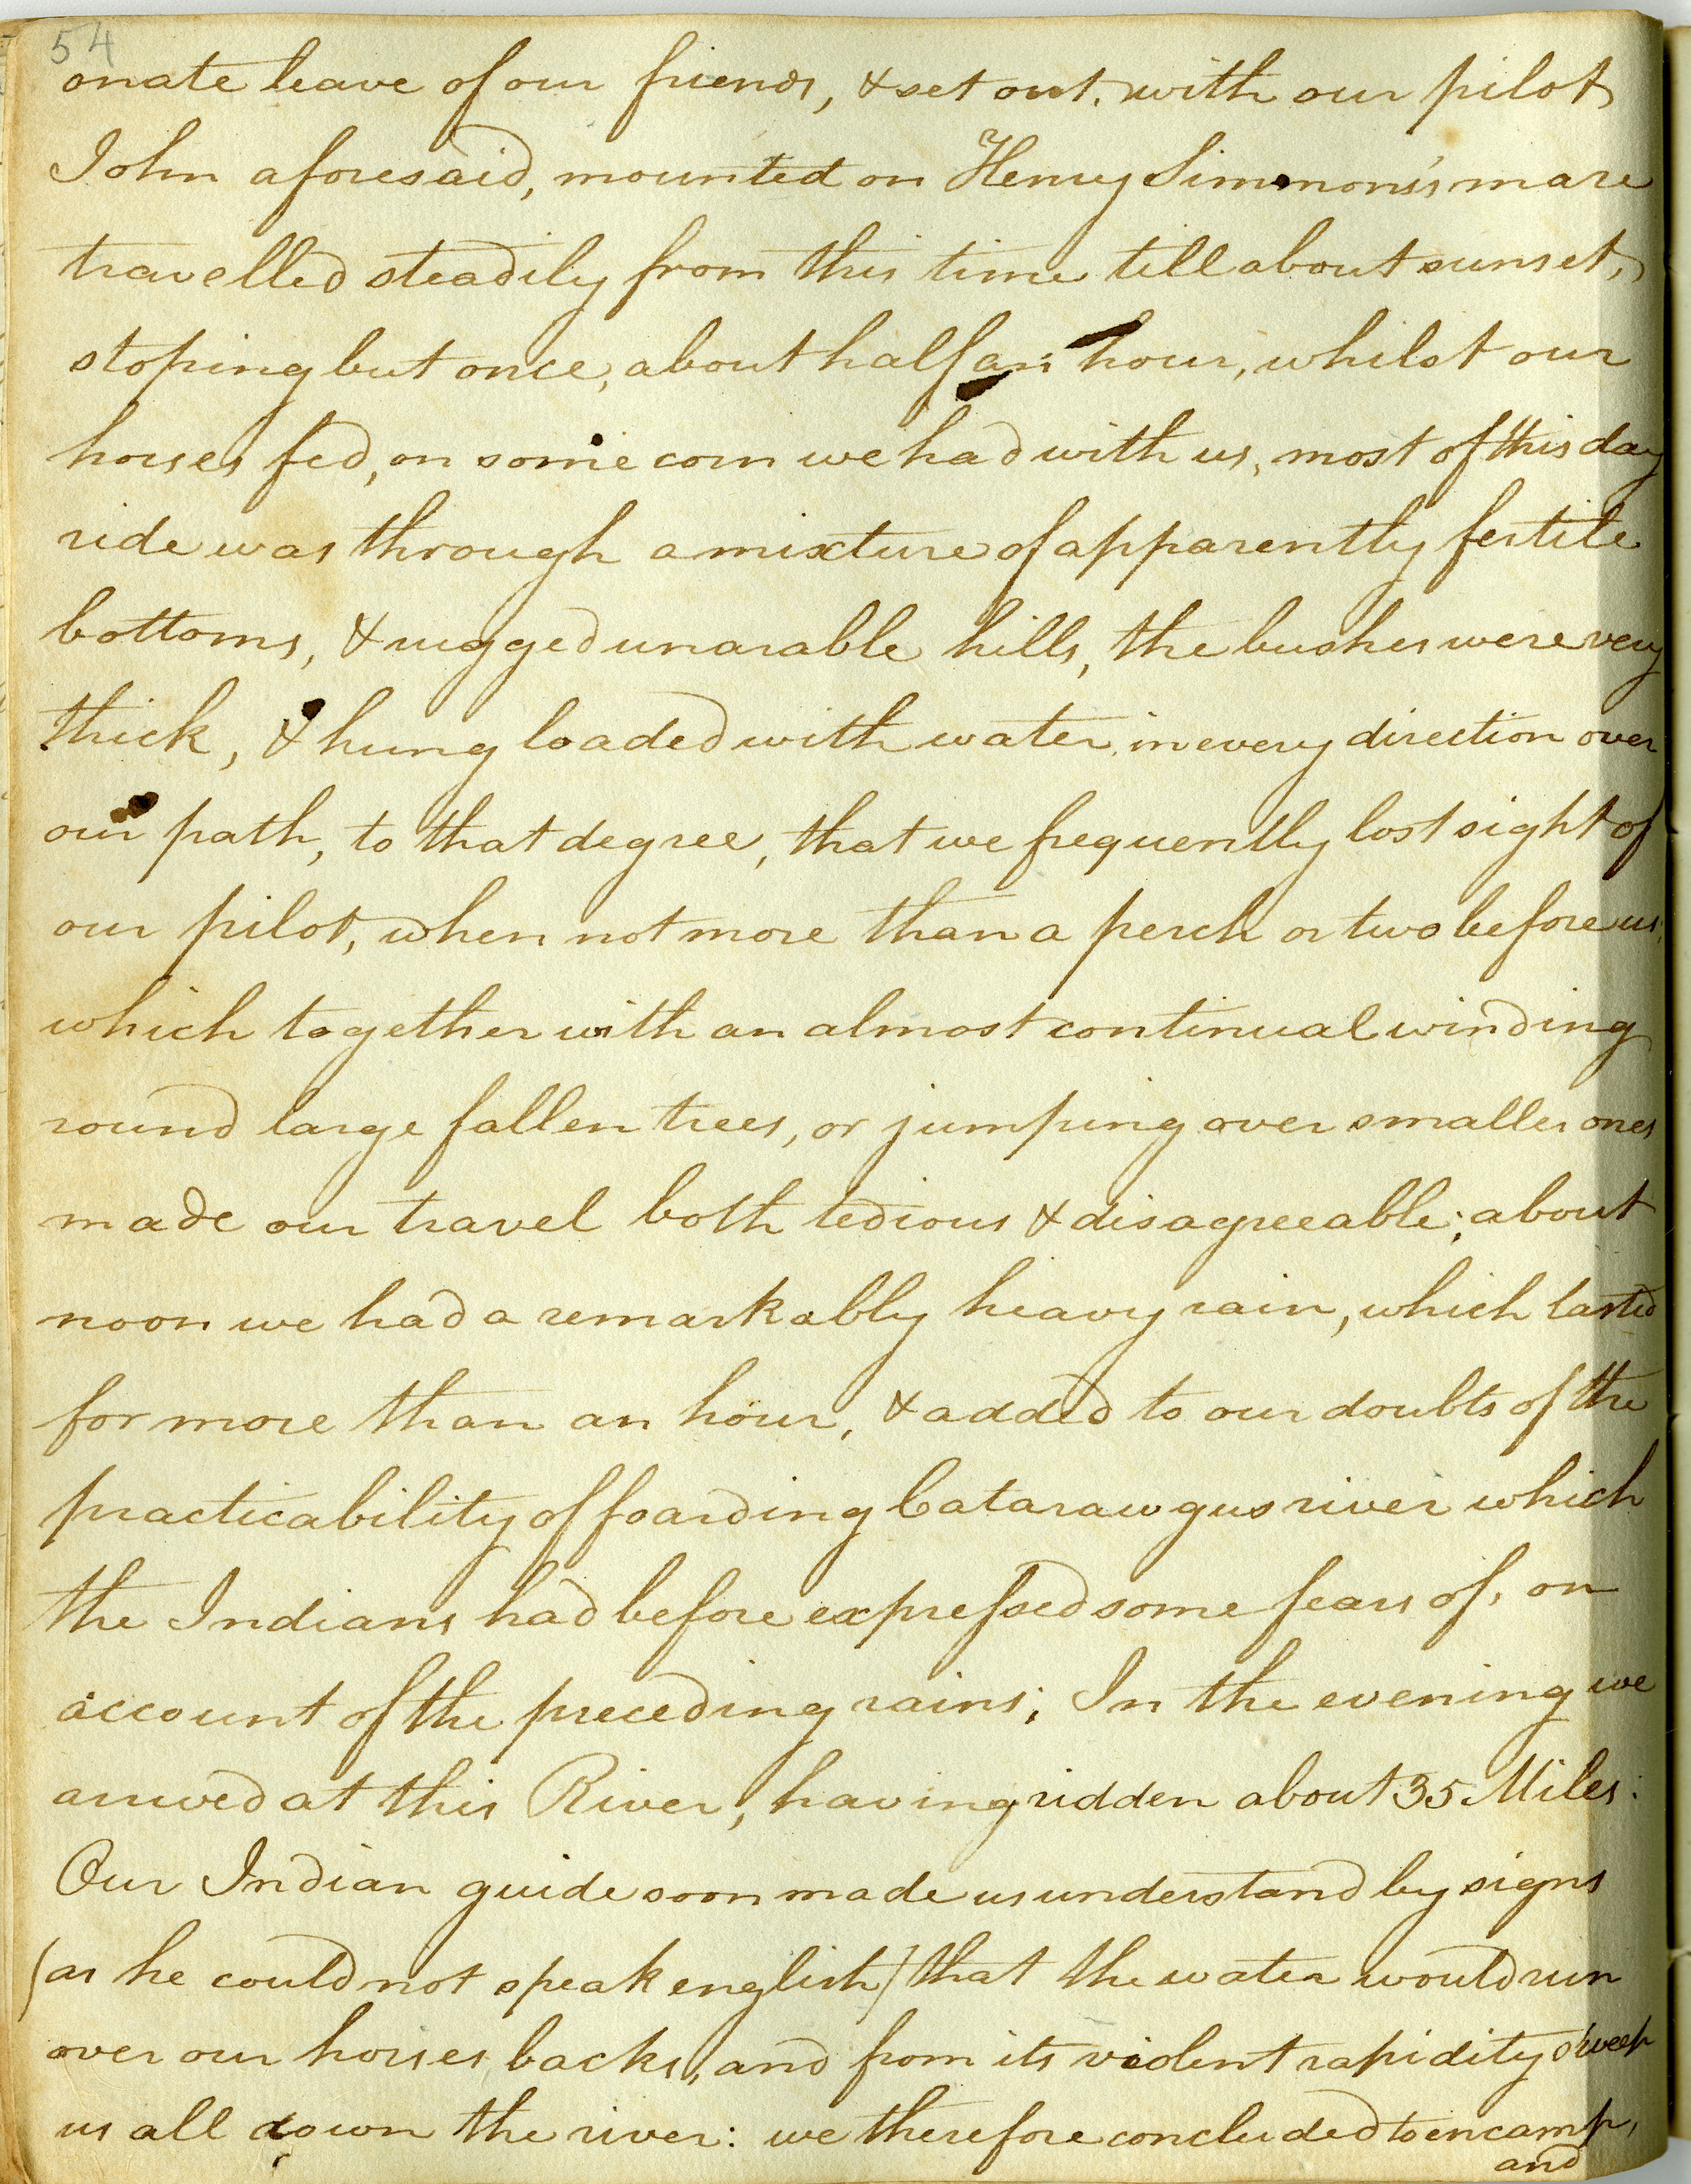 54
onate leave of our friends, & set out, with our pilot
John aforesaid, mounted on Henry Simmons's mare
travelled steadily from this time till about sunset,
stoping but once, about half an hour, whilst our
horses fed, on some corn we had with us, most of this day
ride was through a mixture of apparently fertile
bottoms, & rugged unarable hills, the bushes were very
thick, & hung loaded with water, in every direction over
our path, to that degree, that we frequently lost sight of
our pilot, when not more than a perch or two before us,
which together with an almost continual winding
round large fallen trees, or jumping over smaller ones
made our travel both tedious & disagreeable; about
noon we had a remarkably heavy rain, which lasted
for more than an hour, & added to our doubts of the
practicability of foarding Catarawgus river which
the Indians had before expressed some fears of, on
account of the preceding rains; In the evening we
arrived at this River, having ridden about 35 Miles:
Our Indian guide soon made us understand by signs
(as he could not speak english) that the water would run
over our horses backs, and from its violent rapidity sweep
us all down the river: we therefore concluded to encamp,
and